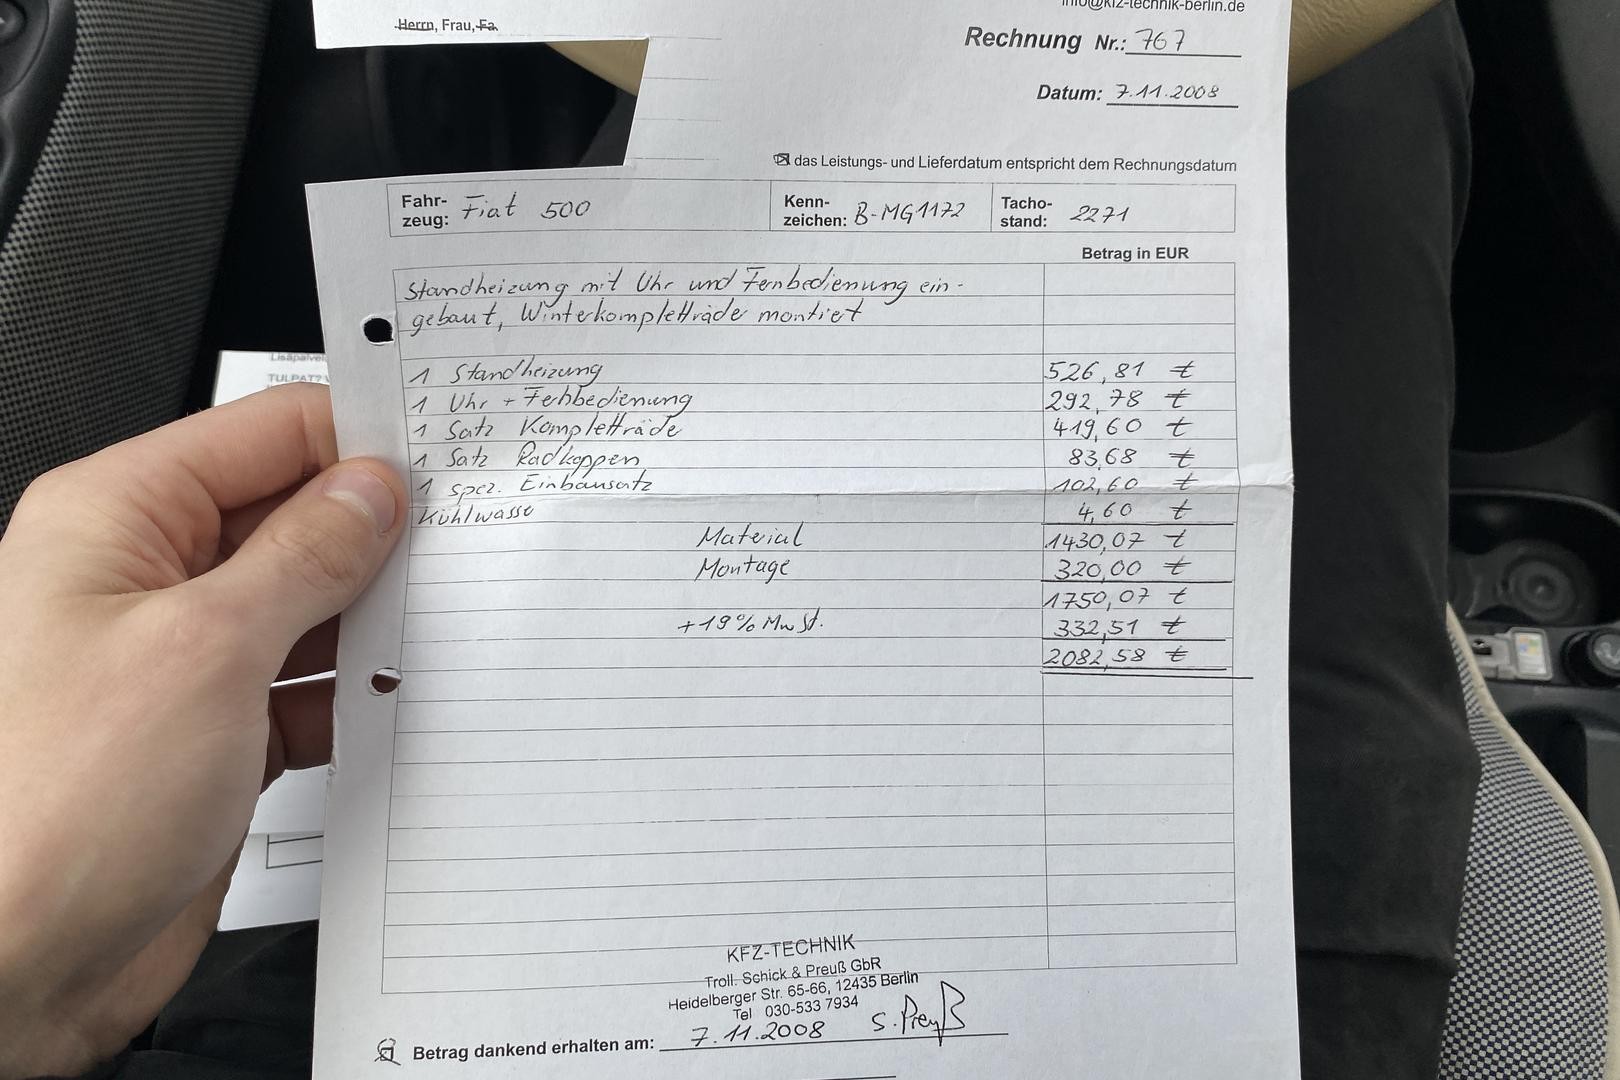 info@kfz-technik-berlin.de
Herrn, Frau, Fa.
Rechnung Nr.: 767
Datum: 7.11.2008
das Leistungs- und Lieferdatum entspricht dem Rechnungsdatum
Fahr-zeug: Fiat 500 Kenn-zeichen: B-MG1172 Tacho-stand: 2271
Betrag in EUR
Standheizung mit Uhr und Fernbedienung ein-
gebaut, Winterkompletträde montiert
1 Standheizung 526,81 €
1 Uhr + Fehbedienung 292,78 €
1 Satz Kompletträde 419,60 €
1 Satz Radkappen 83,68 €
1 spez. Einbausatz 102,60 €
Kühlwasse 4,60 €
Material 1430,07 €
Montage 320,00 €
1750,07 €
+19% MwSt. 332,51 €
2082,58 €
KFZ-TECHNIK
Troll. Schick & Preuß GbR
Heidelberger Str. 65-66, 12435 Berlin
Tel 030-533 7934
Betrag dankend erhalten am: 7.11.2008 S. Preuß
TULPAT?